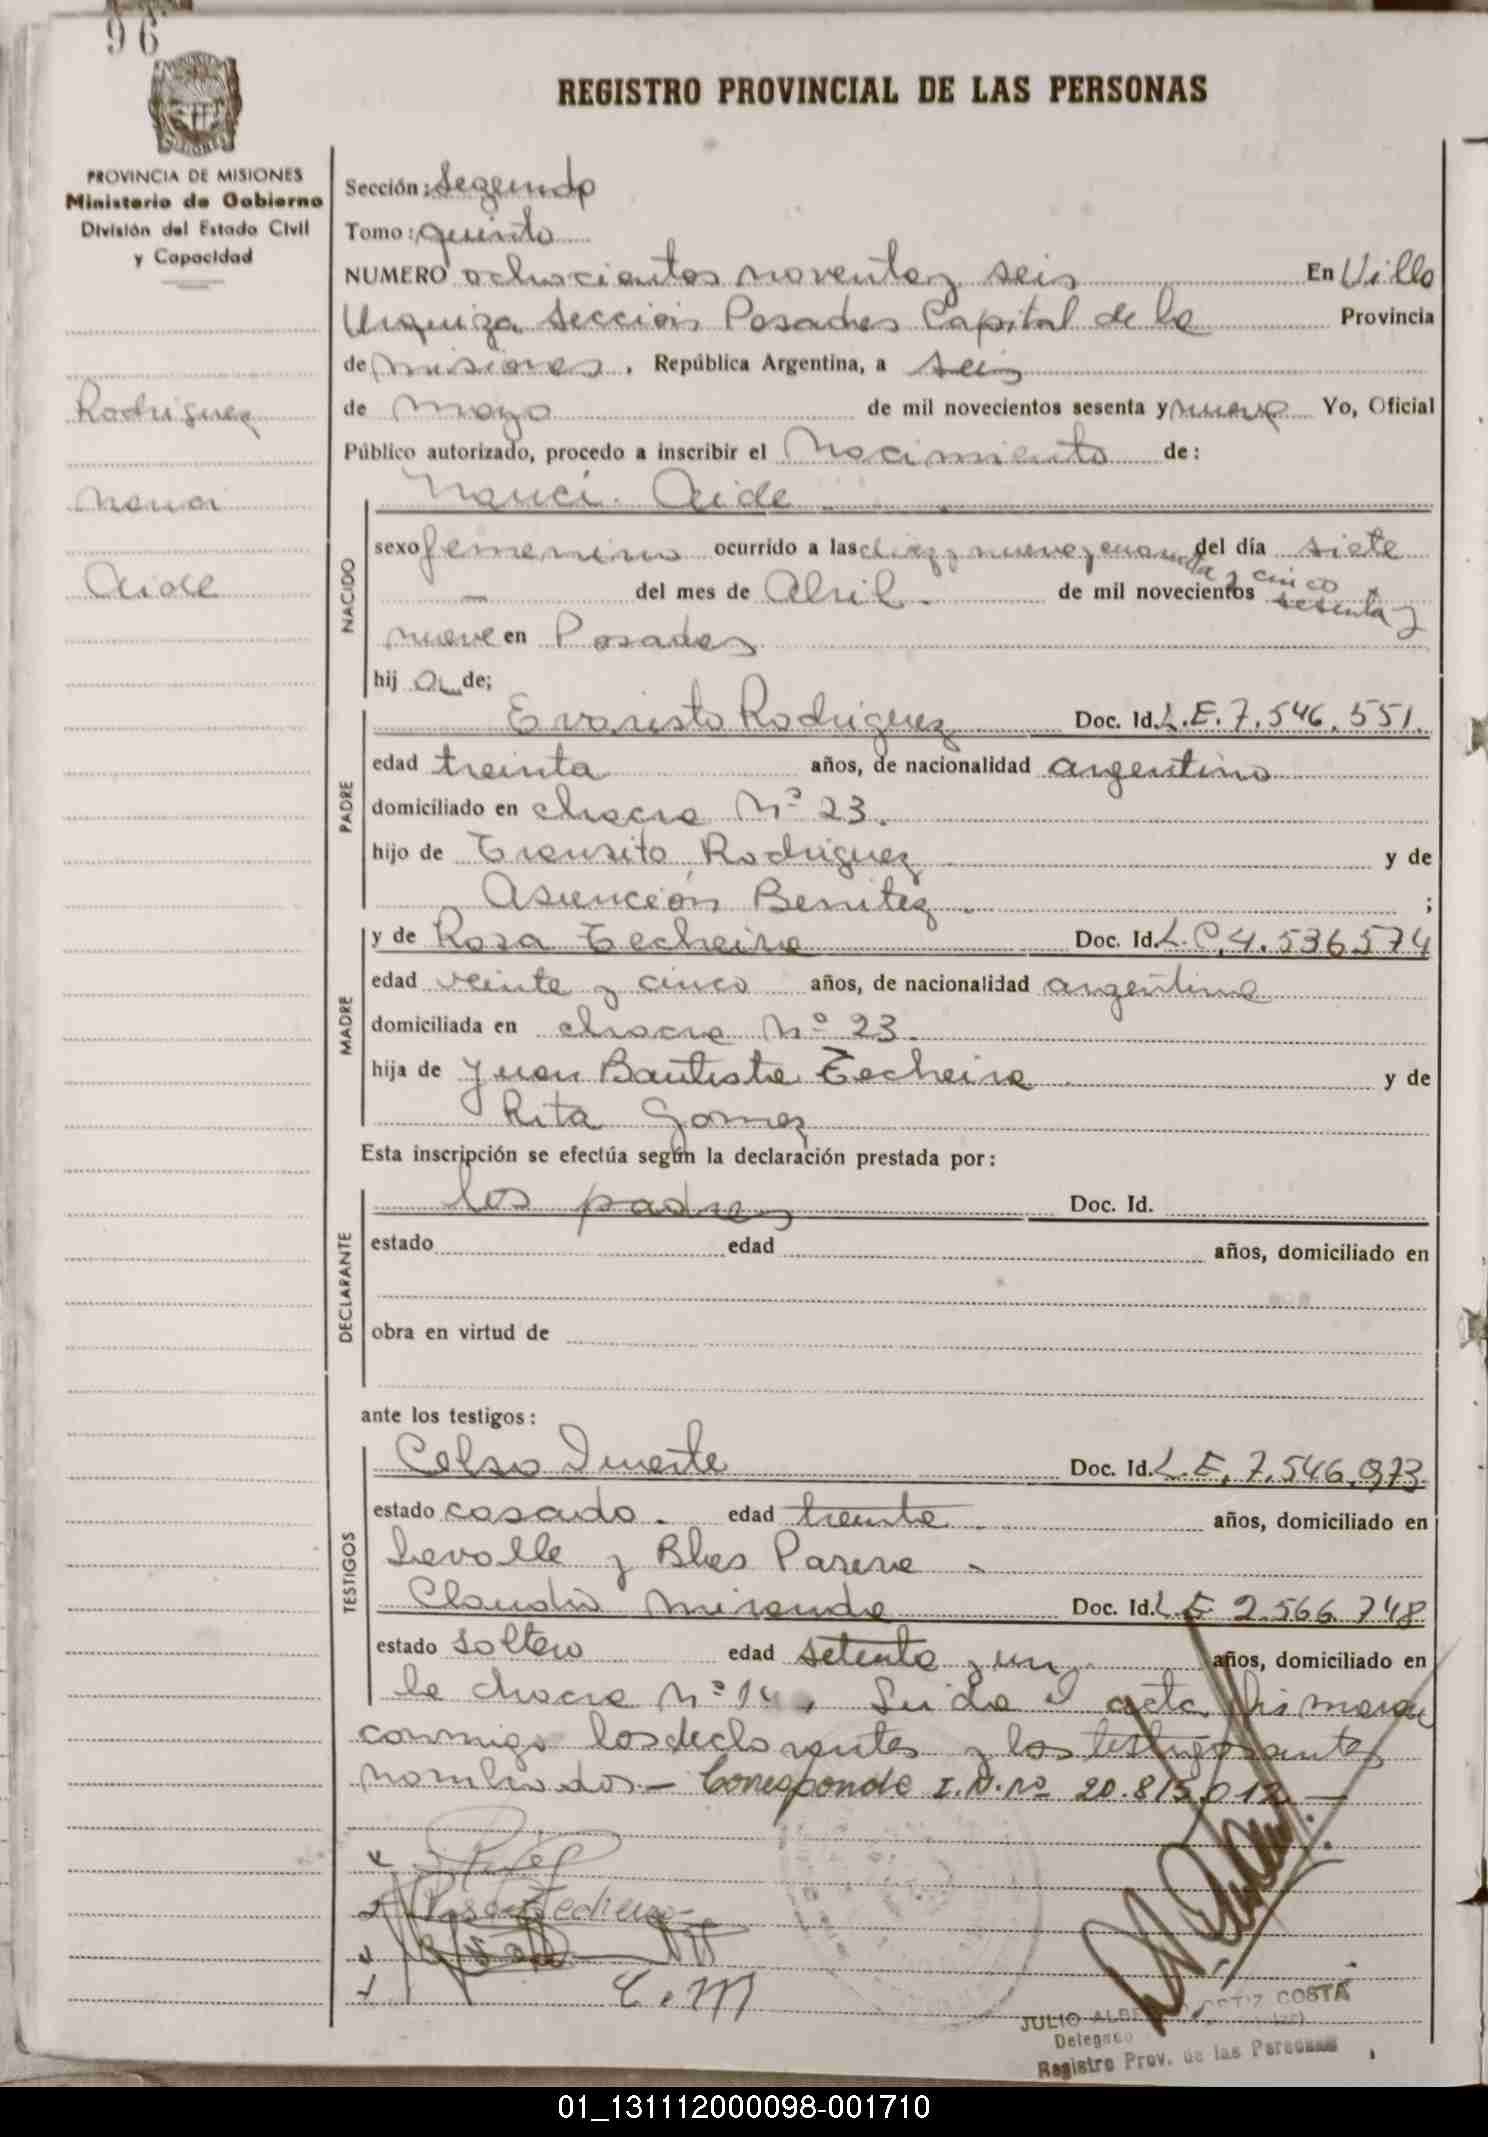 96
REGISTRO PROVINCIAL DE LAS PERSONAS
PROVINCIA DE MISIONES
Ministerio de Gobierno
División del Estado Civil
y Capacidad
Rodriguez
Nanci
Aide
Sección: Segundo
Tomo: quinto
NUMERO ochocientos noventa y seis En Villa
Urquiza Sección Posadas Capital de la Provincia
de misiones, República Argentina, a seis
de mayo de mil novecientos sesenta y nueve Yo, Oficial
Público autorizado, procedo a inscribir el Nacimiento de:
Nanci. Aide
NACIDO
sexo femenino ocurrido a las diez y nueve y cuarenta y cinco del día siete
— del mes de Abril. de mil novecientos sesenta y
nueve en Posadas
hij a de;
PADRE
Evaristo Rodriguez Doc. Id. L.E. 7.546.551.
edad treinta años, de nacionalidad argentino
domiciliado en chacra Nº 23.
hijo de Transito Rodriguez y de
Asunción Benitez. ;
MADRE
y de Rosa Techeira Doc. Id. L.C. 4.536574
edad veinte y cinco años, de nacionalidad argentina
domiciliada en chacra Nº 23.
hija de Juan Bautista Techeira y de
Rita Gomez
Esta inscripción se efectúa según la declaración prestada por:
DECLARANTE
los padres Doc. Id.
estado edad años, domiciliado en
obra en virtud de
ante los testigos:
TESTIGOS
Celso Duarte Doc. Id. L.E. 7.546.973
estado casado. edad treinta años, domiciliado en
Lavalle y Blas Parera
Claudio Miranda Doc. Id. L.E 2.566.748
estado soltero edad setenta y un años, domiciliado en
la chacra Nº 14, Leida el acta firmaron
conmigo los declarantes y los testigos antes
nombrados.— Corresponde I.N.Nº 20.815.012 —
Rosa Techeira
C.M
JULIO ALBERTO ORTIZ COSTA
Delegado
Registro Prov. de las Personas
01_131112000098-001710